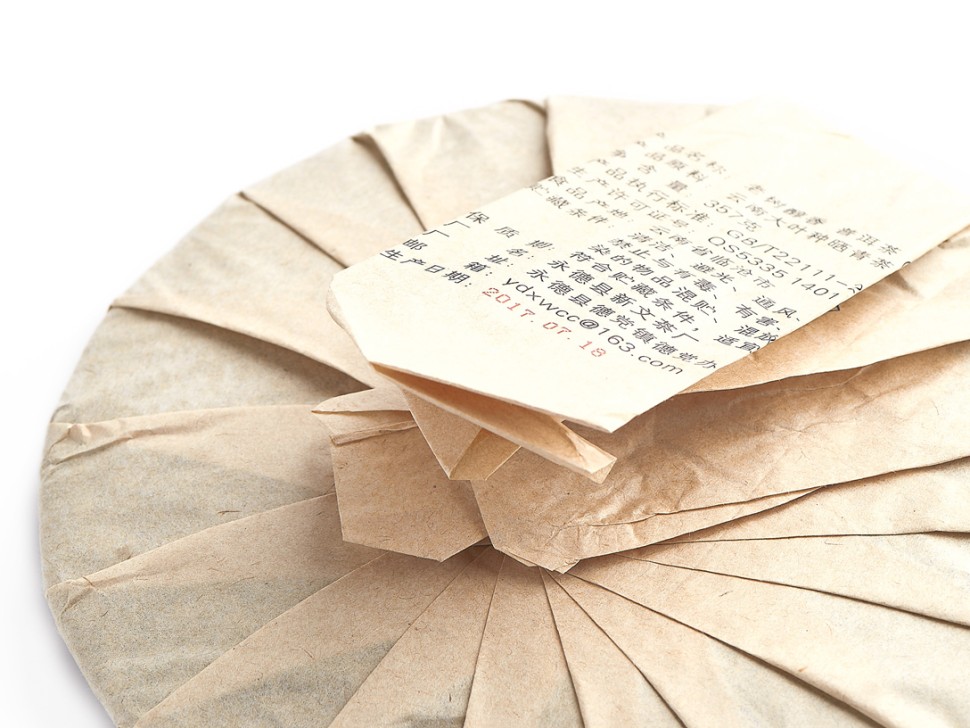 品名称: 树醇香 普洱茶
品原料: 云南大叶种晒青茶
含量: 357克
品执行标准: GB/T22111—
生产许可证号: QS5335 1401
食品产地: 云南省临沧市
贮藏条件: 清洁、避光、通风、
禁止与有毒、有害、
染的物品混贮、混放
保质期: 符合贮藏条件,适宜
厂名: 永德县新文茶厂
厂 永德县德党镇德党办
邮箱: ydxwcc@163.com
生产日期: 2017.07.18